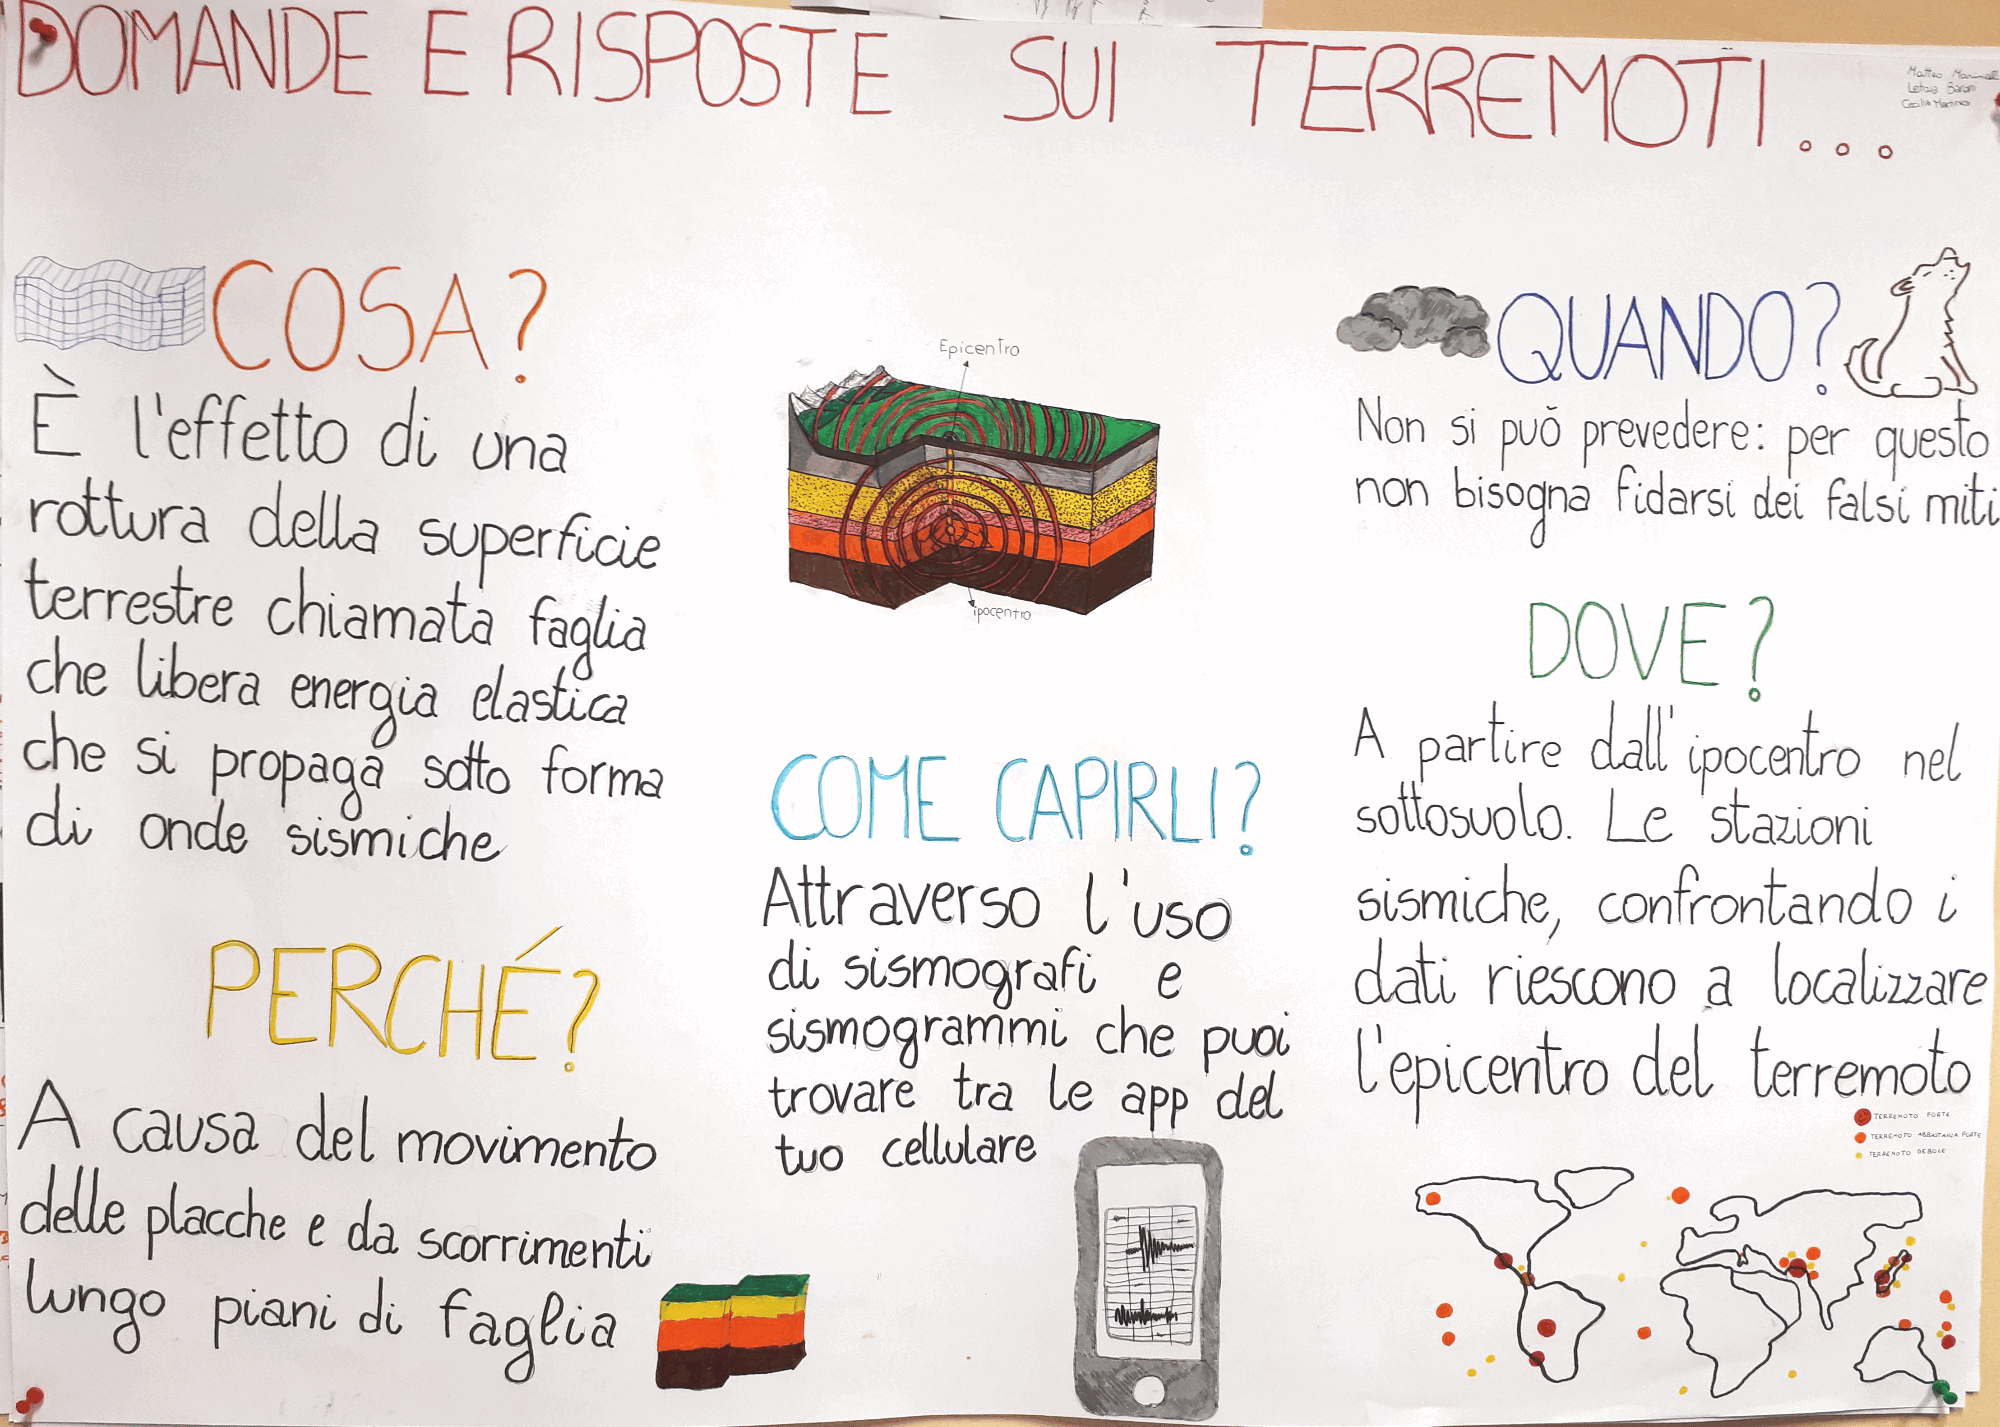 DOMANDE E RISPOSTE SUI TERREMOTI...
Matteo
Letizia Baroni
Cecilia
COSA?
È l'effetto di una
rottura della superficie
terrestre chiamata faglia
che libera energia elastica
che si propaga sotto forma
di onde sismiche
PERCHÉ?
A causa del movimento
delle placche e da scorrimenti
lungo piani di faglia
Epicentro
ipocentro
COME CAPIRLI?
Attraverso l'uso
di sismografi e
sismogrammi che puoi
trovare tra le app del
tuo cellulare
QUANDO?
Non si può prevedere: per questo
non bisogna fidarsi dei falsi miti
DOVE?
A partire dall'ipocentro nel
sottosuolo. Le stazioni
sismiche, confrontando i
dati riescono a localizzare
l'epicentro del terremoto
TERREMOTO FORTE
TERREMOTO ABBASTANZA FORTE
TERREMOTO DEBOLE